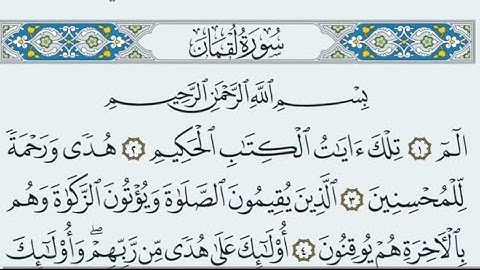 سُورَةُ لُقْمَانَ
بِسْمِ ٱللَّهِ ٱلرَّحْمَٰنِ ٱلرَّحِيمِ
الٓمٓ ١ تِلْكَ ءَايَٰتُ ٱلْكِتَٰبِ ٱلْحَكِيمِ ٢ هُدًى وَرَحْمَةً
لِّلْمُحْسِنِينَ ٣ ٱلَّذِينَ يُقِيمُونَ ٱلصَّلَوٰةَ وَيُؤْتُونَ ٱلزَّكَوٰةَ وَهُم
بِٱلْأَخِرَةِ هُمْ يُوقِنُونَ ٤ أُو۟لَٰٓئِكَ عَلَىٰ هُدًى مِّن رَّبِّهِمْ ۖ وَأُو۟لَٰٓئِكَ